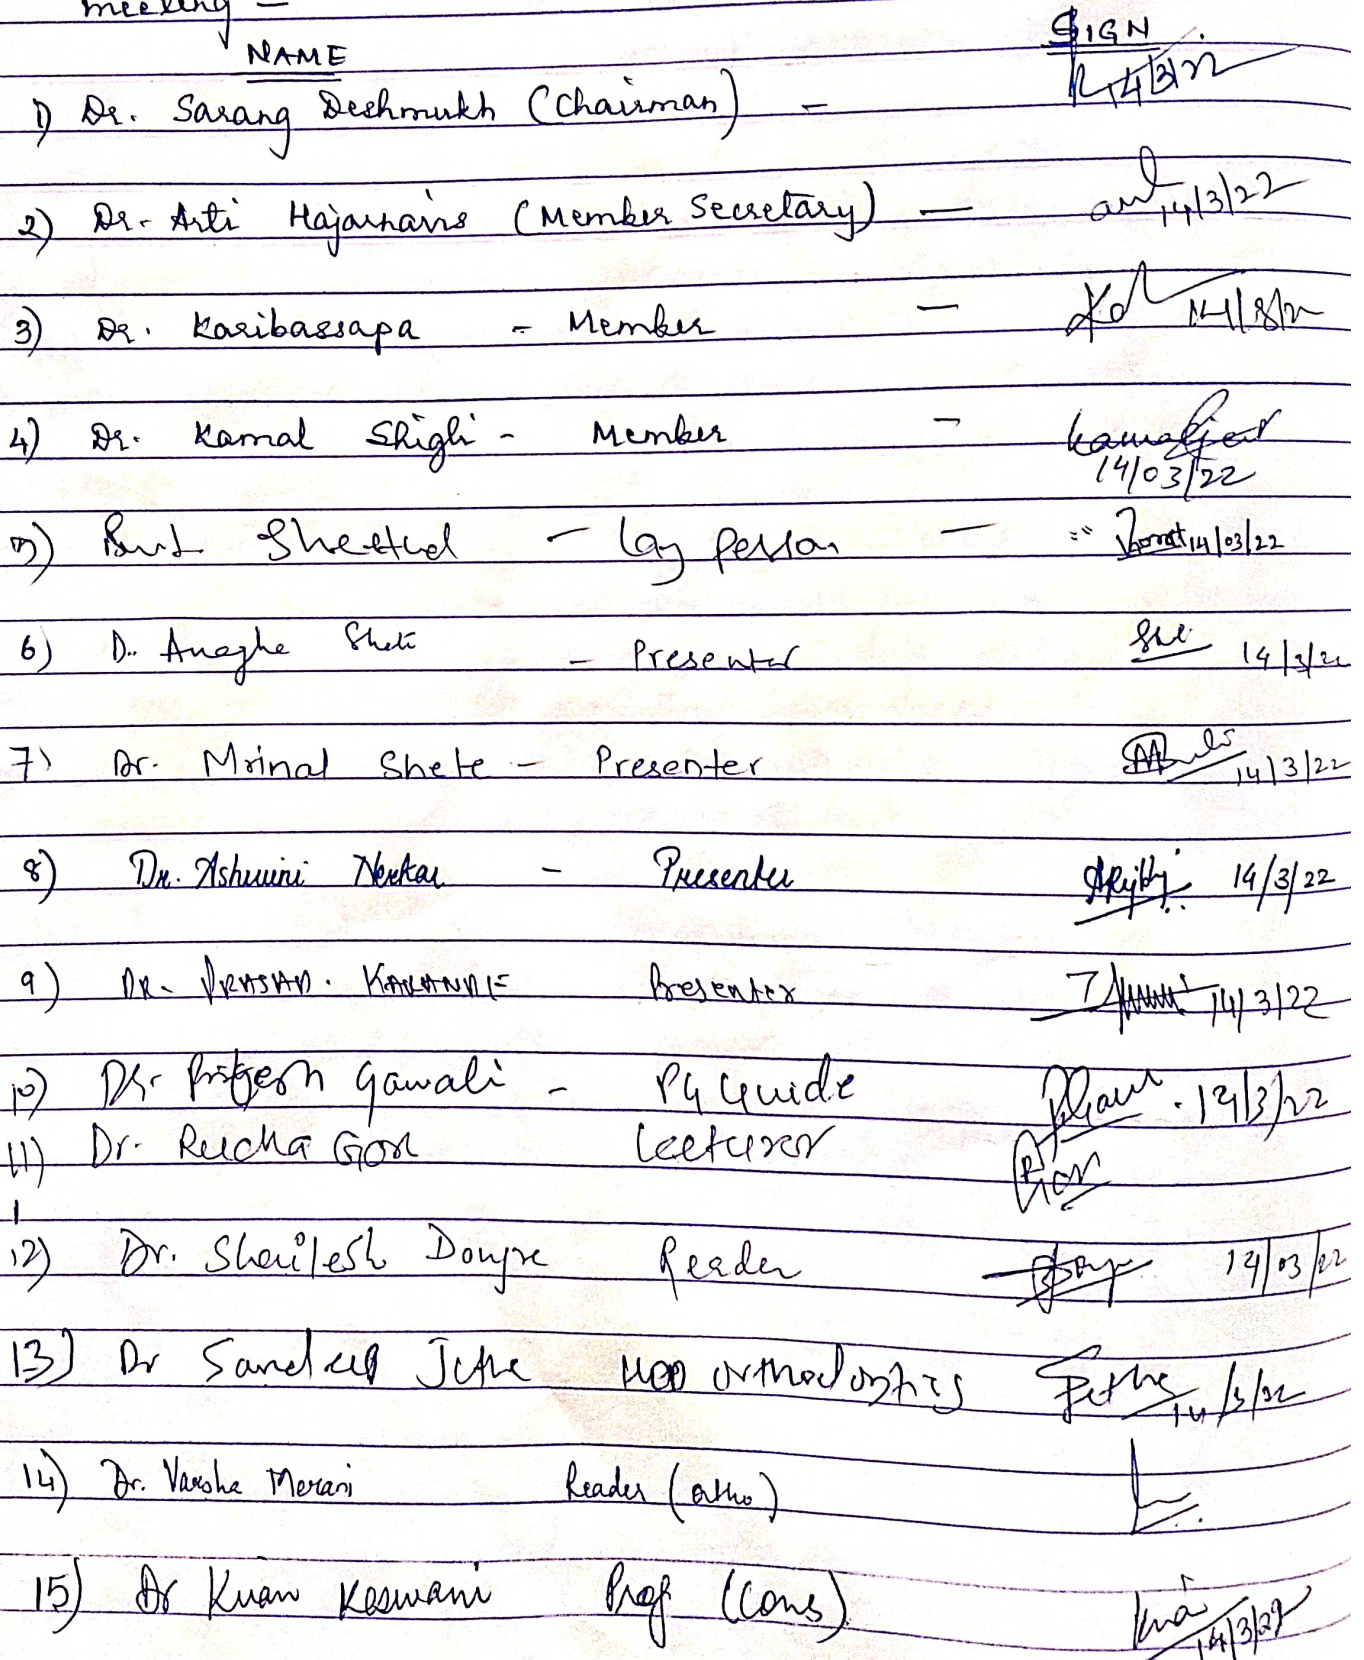 meeting -
NAME SIGN
1) Dr. Sarang Deshmukh (Chairman) - 14/3/22
2) Dr. Arti Hajarnavis (Member Secretary) - 14/3/22
3) Dr. Karibassapa - Member - 14/3/22
4) Dr. Kamal Shigli - Member - Kamaljeet
14/03/22
5) - lay person - 14/03/22
6) D. Anagha Shete - Presenter 14/3/22
7) Dr. Mrinal Shete - Presenter 14/3/22
8) Dr. Ashwini Nerkar - Presenter 14/3/22
9) DR. PRASAD. KARANDIE Presenter 14/3/22
10) Dr. Pritesh Gawali - PG Guide 14/3/22
11) Dr. Rucha Gor Lecturer Gor
12) Dr. Shailesh Dongre Reader 14/03/22
13) Dr Sandeep Jethe HOD Orthodontics Jethe 14/3/22
14) Dr. Varsha Merani Reader (ortho)
15) Dr Kiran Keswani Prof (Cons) 14/3/22